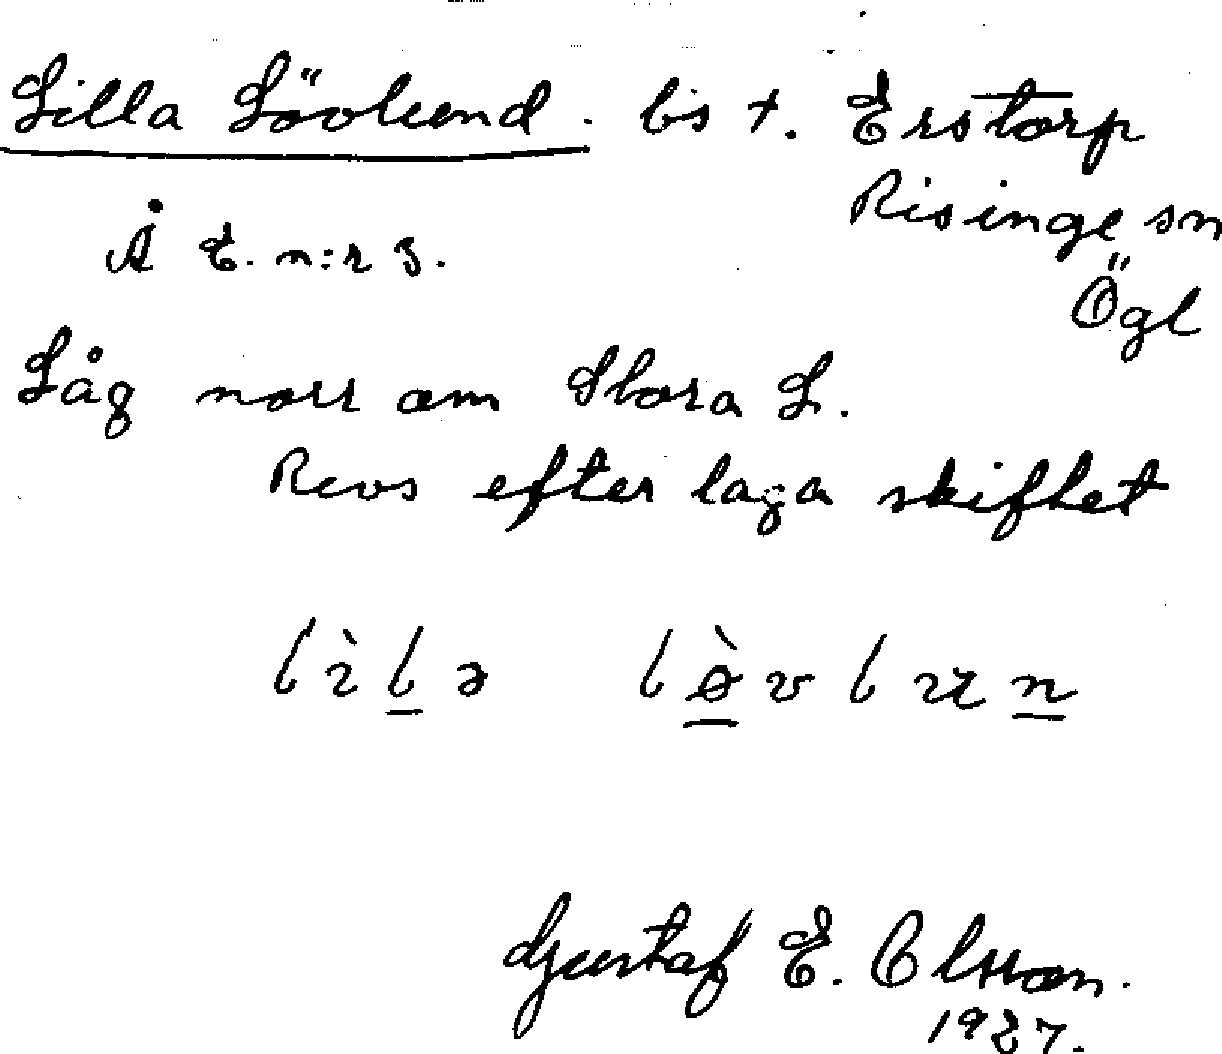 Lilla Lövlund. bs t. Erstorp
Risinge sn
Å E. n:r 3.
Ögl
Låg norr om Stora L.
Revs efter laga skiftet
Gustaf E. Olsson.
1927.